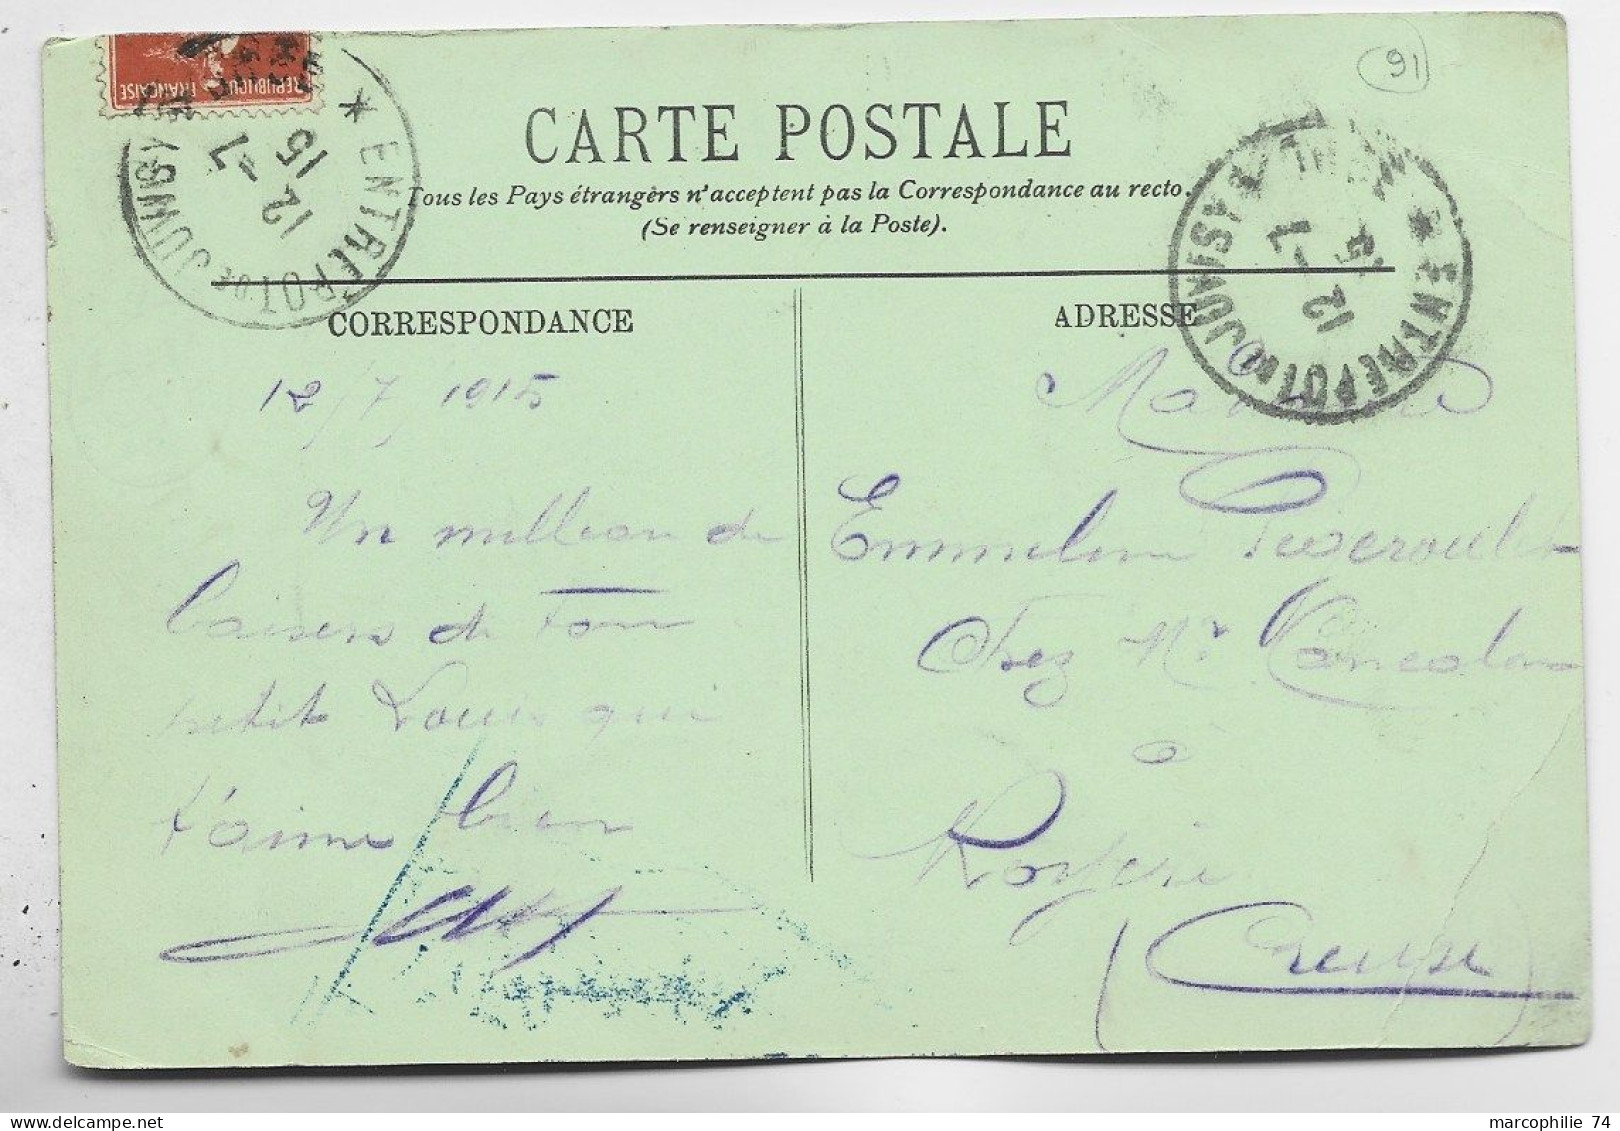 91
CARTE POSTALE
Tous les Pays étrangers n'acceptent pas la Correspondance au recto.
(Se renseigner à la Poste).
REPUBLIQUE FRANÇAISE
* ENTREPOT DE JUVISY
12 -7
15
* ENTREPOT DE JUVISY
12 -7
15
CORRESPONDANCE
12/7/1915
Un million de
baisers de ton
petit Louis qui
t'aime bien
ADRESSE
Madame
Emmeline
Chez Mr
à
Royère
(Creuse)
marcophilie 74